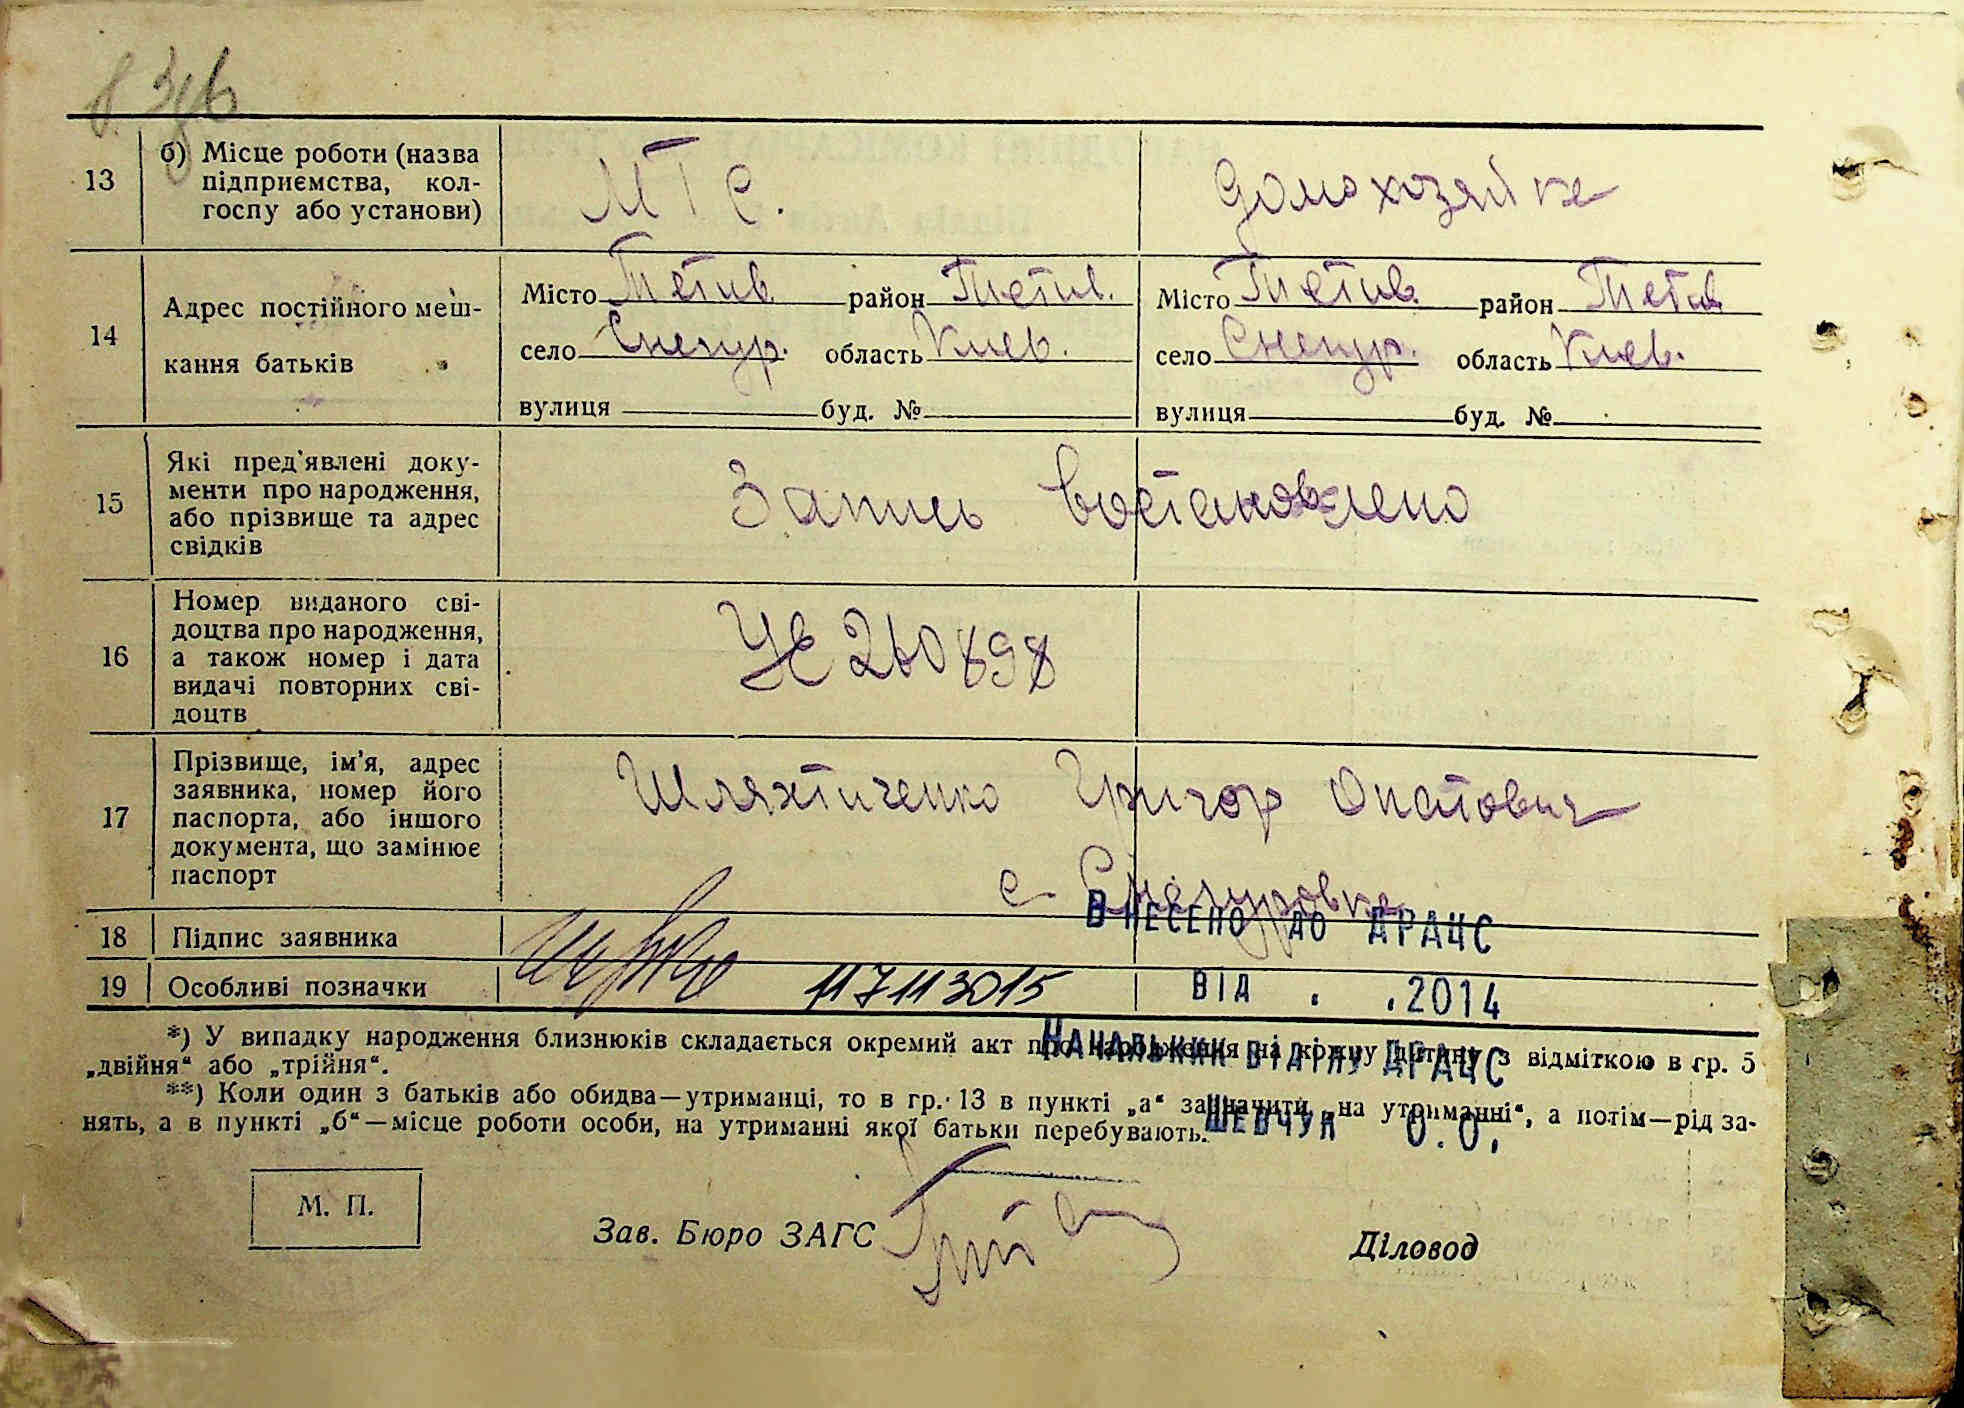 13 б) Місце роботи (назва підприємства, кол-госпу або установи) МТС. домохозяйка
14 Адрес постійного меш-кання батьків
Місто Тетив район Тетив. Місто Тетив. район Тетив
село Снегур. область Киев. село Снегур. область Киев.
вулиця буд. № вулиця буд. №
15 Які пред'явлені доку-
менти про народження,
або прізвище та адрес
свідків
Запись востановлено
16 Номер виданого сві-
доцтва про народження,
а також номер і дата
видачі повторних сві-
доцтв
УЕ 260898
17 Прізвище, ім'я, адрес
заявника, номер його
паспорта, або іншого
документа, що замінює
паспорт
Шляхтиченко Григор Опатович
с. Снегуровка
ВНЕСЕНО ДО ДРАЦС
18 Підпис заявника
19 Особливі позначки 117113015 ВІД . .2014
НАЧАЛЬНИК ВІДДІЛУ ДРАЦС
ШЕВЧУК О.О.
*) У випадку народження близнюків складається окремий акт про народження на кожну дитину з відміткою в гр. 5
„двійня“ або „трійня“.
**) Коли один з батьків або обидва—утриманці, то в гр. 13 в пункті „а“ зазначити „на утриманні“, а потім—рід за-
нять, а в пункті „б“—місце роботи особи, на утриманні якої батьки перебувають.
М. П.
Зав. Бюро ЗАГС
Діловод